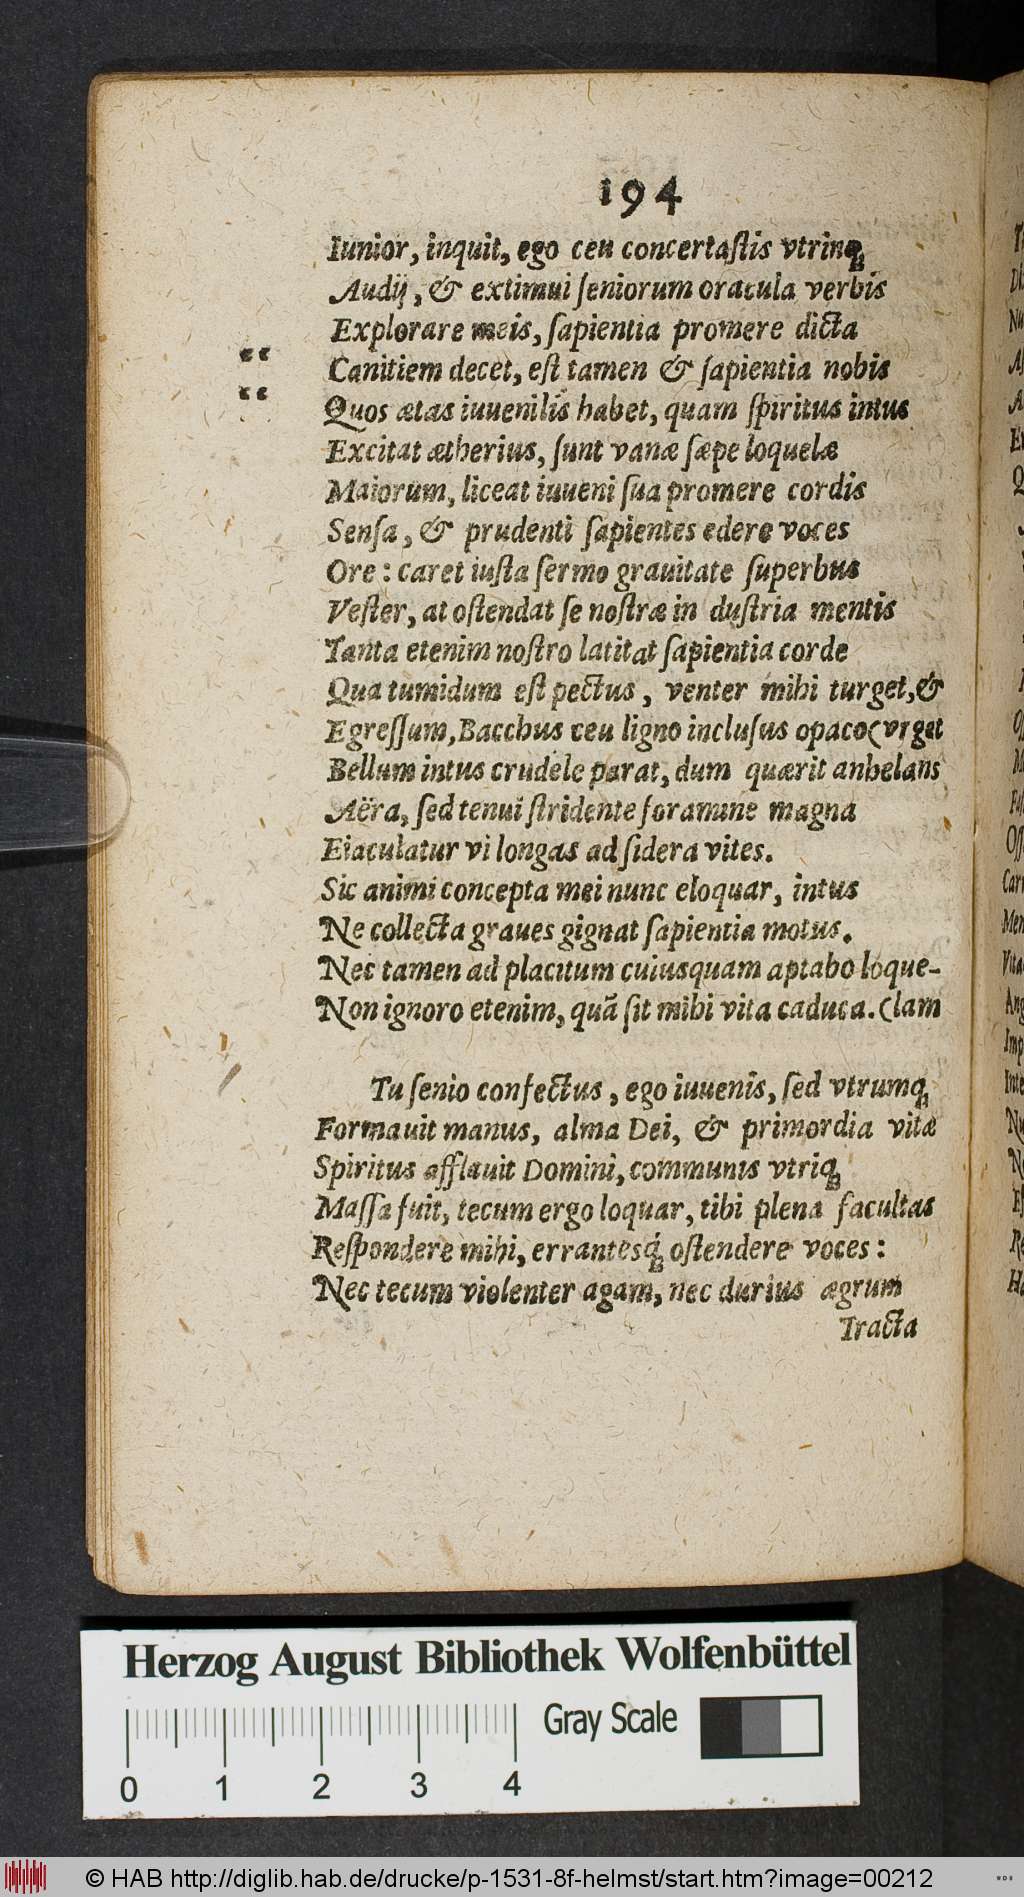 194
Iunior, inquit, ego ceu concertaſtis vtrinq;
Audij, & extimui ſeniorum oracula verbis
Explorare meis, ſapientia promere dicta
“ Canitiem decet, eſt tamen & ſapientia nobis
“ Quos ætas iuuenilis habet, quam ſpiritus intus
Excitat ætherius, ſunt vanæ ſæpe loquelæ
Maiorum, liceat iuueni ſua promere cordis
Senſa, & prudenti ſapientes edere voces
Ore: caret iuſta ſermo grauitate ſuperbus
Veſter, at oſtendat ſe noſtræ in duſtria mentis
Tanta etenim noſtro latitat ſapientia corde
Qua tumidum eſt pectus, venter mihi turget, &
Egreſſum, Bacchus ceu ligno incluſus opaco (vrget
Bellum intus crudele parat, dum quærit anhelans
Aëra, ſed tenui ſtridente foramine magna
Eiaculatur vi longas ad ſidera vites.
Sic animi concepta mei nunc eloquar, intus
Ne collecta graues gignat ſapientia motus.
Nec tamen ad placitum cuiusquam aptabo loque-
Non ignoro etenim, quã ſit mihi vita caduca. (lam
Tu ſenio confectus, ego iuuenis, ſed vtrumq;
Formauit manus, alma Dei, & primordia vitæ
Spiritus afflauit Domini, communis vtriq;
Maſſa fuit, tecum ergo loquar, tibi plena facultas
Reſpondere mihi, errantesq́; oſtendere voces:
Nec tecum violenter agam, nec durius ægrum
Tracta
Herzog August Bibliothek Wolfenbüttel
Gray Scale
0 1 2 3 4
© HAB http://diglib.hab.de/drucke/p-1531-8f-helmst/start.htm?image=00212